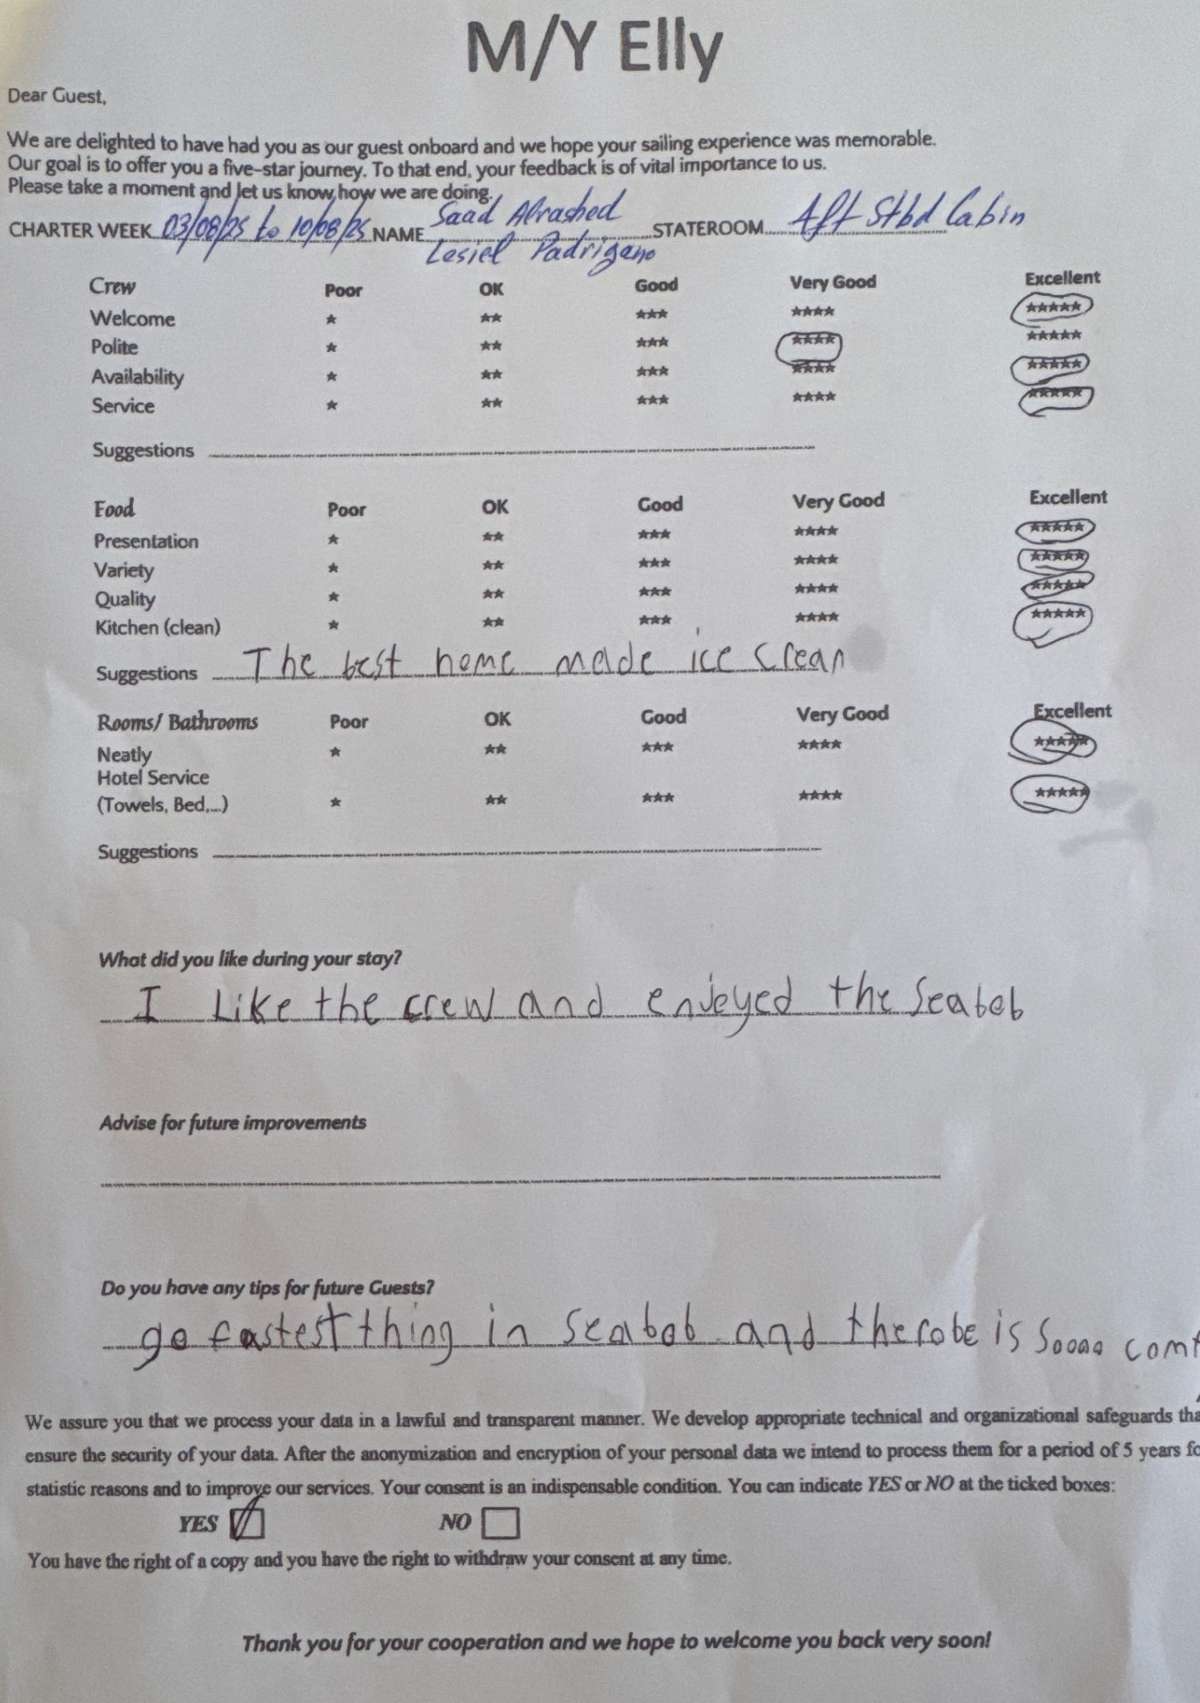 M/Y Elly
Dear Guest,
We are delighted to have had you as our guest onboard and we hope your sailing experience was memorable.
Our goal is to offer you a five-star journey. To that end, your feedback is of vital importance to us.
Please take a moment and let us know how we are doing.
CHARTER WEEK 03/08/25 to 10/08/25 NAME Saad Alrashed STATEROOM Aft Stbd Cabin
Lesiel Padrigano
Crew Poor OK Good Very Good Excellent
Welcome * ** *** **** *****
Polite * ** *** **** *****
Availability * ** *** **** *****
Service * ** *** **** *****
Suggestions
Food Poor OK Good Very Good Excellent
Presentation * ** *** **** *****
Variety * ** *** **** *****
Quality * ** *** **** *****
Kitchen (clean) * ** *** **** *****
Suggestions The best home made ice crean
Rooms/ Bathrooms Poor OK Good Very Good Excellent
Neatly * ** *** **** *****
Hotel Service
(Towels, Bed,...) * ** *** **** *****
Suggestions
What did you like during your stay?
I like the crew and enjeyed the seabob
Advise for future improvements
Do you have any tips for future Guests?
go fastest thing in seabob and the robe is soooo comf
We assure you that we process your data in a lawful and transparent manner. We develop appropriate technical and organizational safeguards tha
ensure the security of your data. After the anonymization and encryption of your personal data we intend to process them for a period of 5 years fo
statistic reasons and to improve our services. Your consent is an indispensable condition. You can indicate YES or NO at the ticked boxes:
YES NO
You have the right of a copy and you have the right to withdraw your consent at any time.
Thank you for your cooperation and we hope to welcome you back very soon!